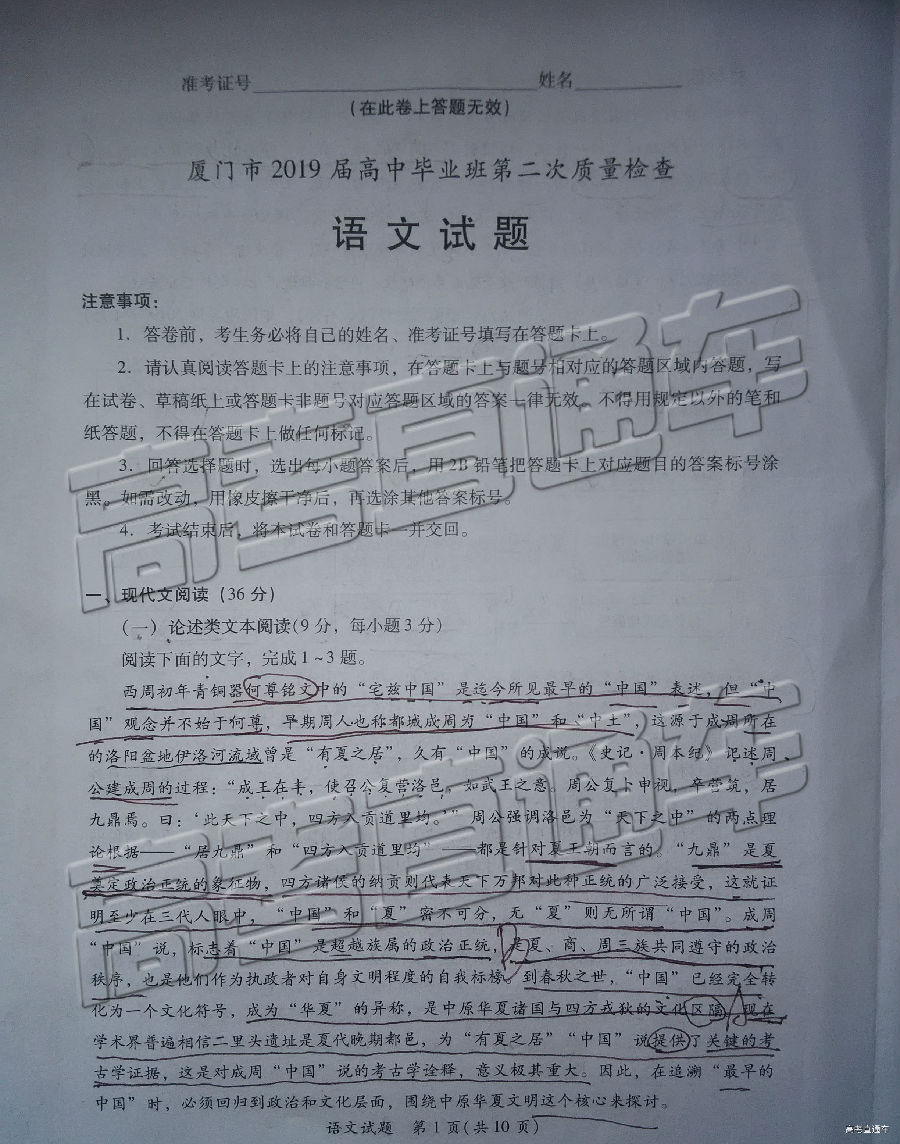 准考证号 姓名
(在此卷上答题无效)
厦门市 2019 届高中毕业班第二次质量检查
语文试题
注意事项:
1. 答卷前,考生务必将自己的姓名、准考证号填写在答题卡上。
2. 请认真阅读答题卡上的注意事项,在答题卡上与题号相对应的答题区域内答题,写
在试卷、草稿纸上或答题卡非题号对应答题区域的答案一律无效。不得用规定以外的笔和
纸答题,不得在答题卡上做任何标记。
3. 回答选择题时,选出每小题答案后,用2B 铅笔把答题卡上对应题目的答案标号涂
黑。如需改动,用橡皮擦干净后,再选涂其他答案标号。
4. 考试结束后,将本试卷和答题卡一并交回。
一、现代文阅读(36 分)
(一)论述类文本阅读(9 分,每小题 3 分)
阅读下面的文字,完成 1~3 题。
西周初年青铜器何尊铭文中的“宅兹中国”是迄今所见最早的“中国”表述,但“中
国”观念并不始于何尊,早期周人也称都城成周为“中国”和“中土”,这源于成周所在
的洛阳盆地伊洛河流域曾是“有夏之居”,久有“中国”的成说。《史记·周本纪》记述周
公建成周的过程:“成王在丰,使召公复营洛邑,如武王之意。周公复卜申视,卒营筑,居
九鼎焉。曰:‘此天下之中,四方入贡道里均。’”周公强调洛邑为“天下之中”的两点理
论根据——“居九鼎”和“四方入贡道里均”——都是针对夏王朝而言的。“九鼎”是夏
奠定政治正统的象征物,四方诸侯的纳贡则代表天下万邦对此种正统的广泛接受,这就证
明至少在三代人眼中,“中国”和“夏”密不可分,无“夏”则无所谓“中国”。成周
“中国”说,标志着“中国”是超越族属的政治正统,是夏、商、周三族共同遵守的政治
秩序,也是他们作为执政者对自身文明程度的自我标榜。到春秋之世,“中国”已经完全转
化为一个文化符号,成为“华夏”的异称,是中原华夏诸国与四方戎狄的文化区隔。现在
学术界普遍相信二里头遗址是夏代晚期都邑,为“有夏之居”“中国”说提供了关键的考
古学证据,这是对成周“中国”说的考古学诠释,意义极其重大。因此,在追溯“最早的
中国”时,必须回归到政治和文化层面,围绕中原华夏文明这个核心来探讨。
语文试题 第 1 页(共 10 页)
高考直通车
高考直通车
高考直通车